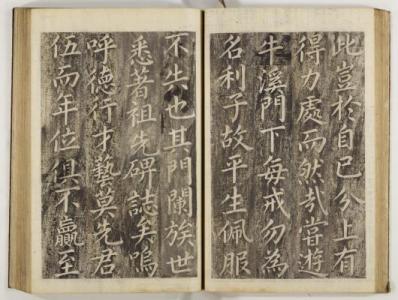 此豈於自己分上有
得力處而然哉嘗遊
牛溪門下每戒勿為
名利子故平生佩服
不失也其門闌族世
悉著祖先碑誌矣嗚
呼德行才藝莫先君
伍而年位俱不贏至